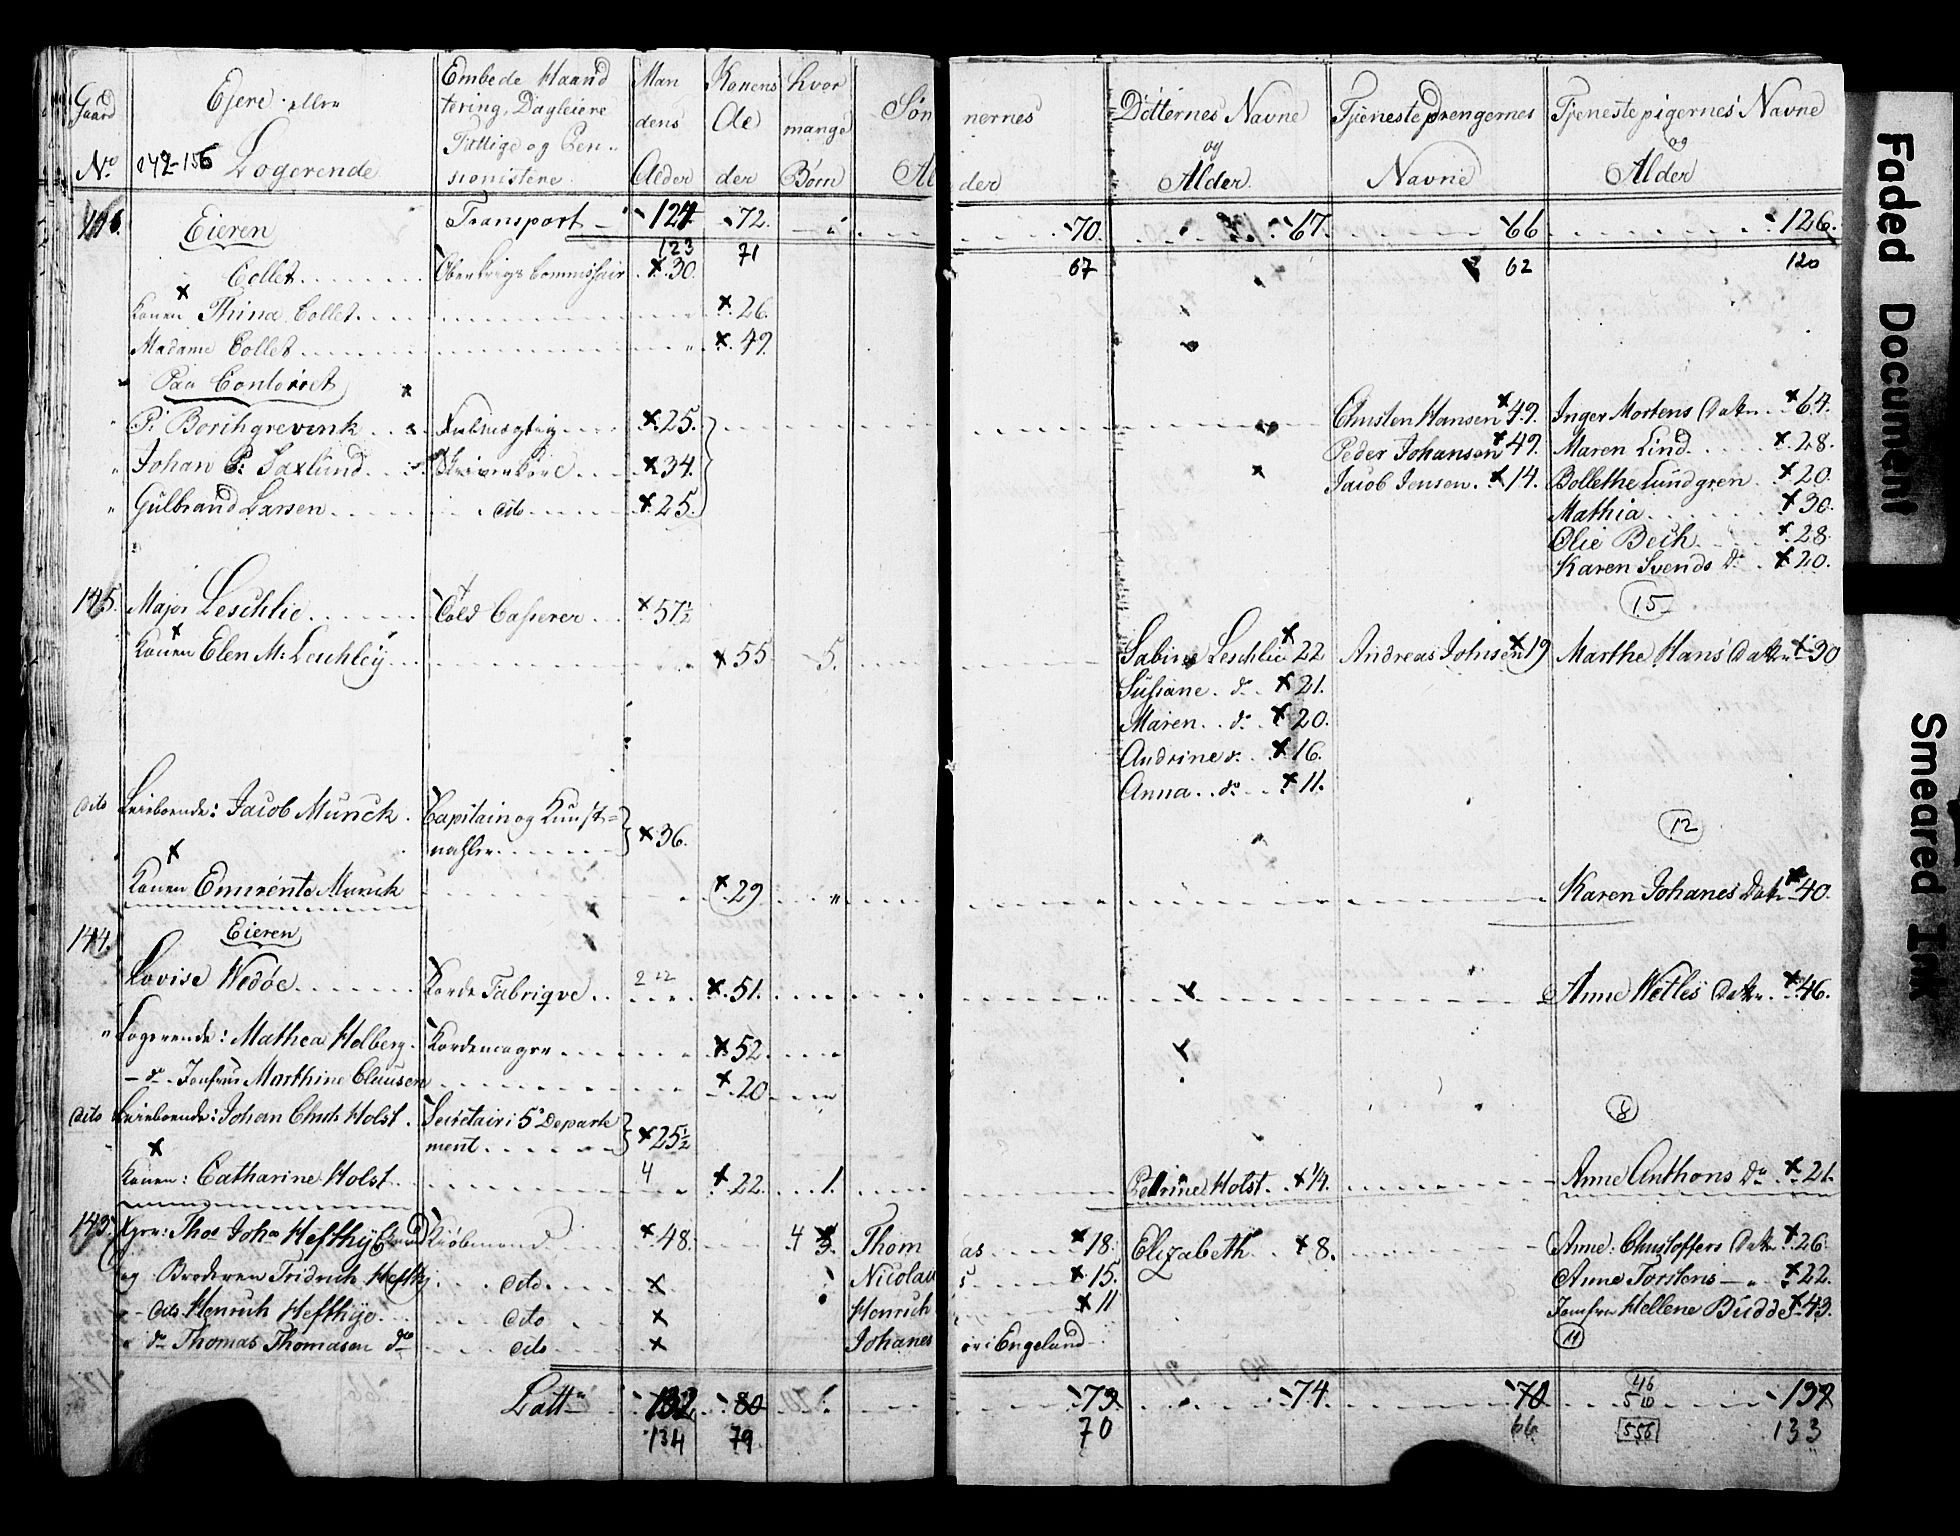 Gaard No
Ejere eller Logerende
142-156
Embede Haandtering, Dagleiere Fattige og Pensionistere
Mandens Alder
Konens Alder
hvor mange Børn
Sønnernes Alder
Døtternes Navne og Alder
Tjenestedrengernes Navne
Tjenestepigernes Navne og Alder
146. Eieren Transport 72. 70. 67. 66 126.
123 71 67 62 120
Collet Oberkrigs Commissair x 30.
Konen Thina Collet x 26.
Madame Collet x 49.
Paa Contoiret
P: Borchgrevink Fuldmægtig x 25. Christen Hansen x 49. Inger Mortens Datter x 64.
Johan P: Saxlund Skriverkarl x 34. Peder Johansen x 49. Maren Lind x 28.
Gulbrand Larsen dito x 25. Jacob Jensen x 14. Bollethe Lundgren x 20.
Mathia x 30.
Olie Bech x 28.
Karen Svends Do x 20.
15
145. Major Leschlie Told Casserer x 57½
Konen Elen M: Leschley x 55 5. Sabine Leschlie x 22 Andreas Johnsen x 19 Marthe Hans Datter x 30
Susane do x 21.
Maren do x 20.
Andrine do x 16.
Anna do x 11.
dito Leieboende: Jacob Munck Capitain og Kunst= mahler x 36.
12
Konen Emerentse Munck x 29 Karen Johanes Datter x 40.
144. Eieren
Lovise Wedøe Korde Fabriqve x 51. Anne Wetles Datter x 46.
Logerende: Mathea Holberg Kordemager x 52
do Jomfrue Marthine Clausen x 20
8
dito Leieboende: Johan Christ Holst Secretair i 5te Departement x 25½
Konen: Catharine Holst 4 x 22. 1. Petrine Holst x ¼. Anne Anthons Do x 21.
143. Thos Johs Hefthy Kiøbmand x 48. 4 Thomas x 18. Elizabeth x 8. Anne Christoffers Datter x 26.
og Broderen Fridrich Hefthy dito x Nicolaus x 15. Anne Torstens x 22.
dito Henrich Hefthye dito x Henrich x 11 Jomfru Hellene Budde x 43.
do Thomas Thomasen do dito x Johanes er i Engeland 11
Latt 132 80 73 74 70 46 510 137
134 79 70 66 556 133
Faded Document
Smeared Ink